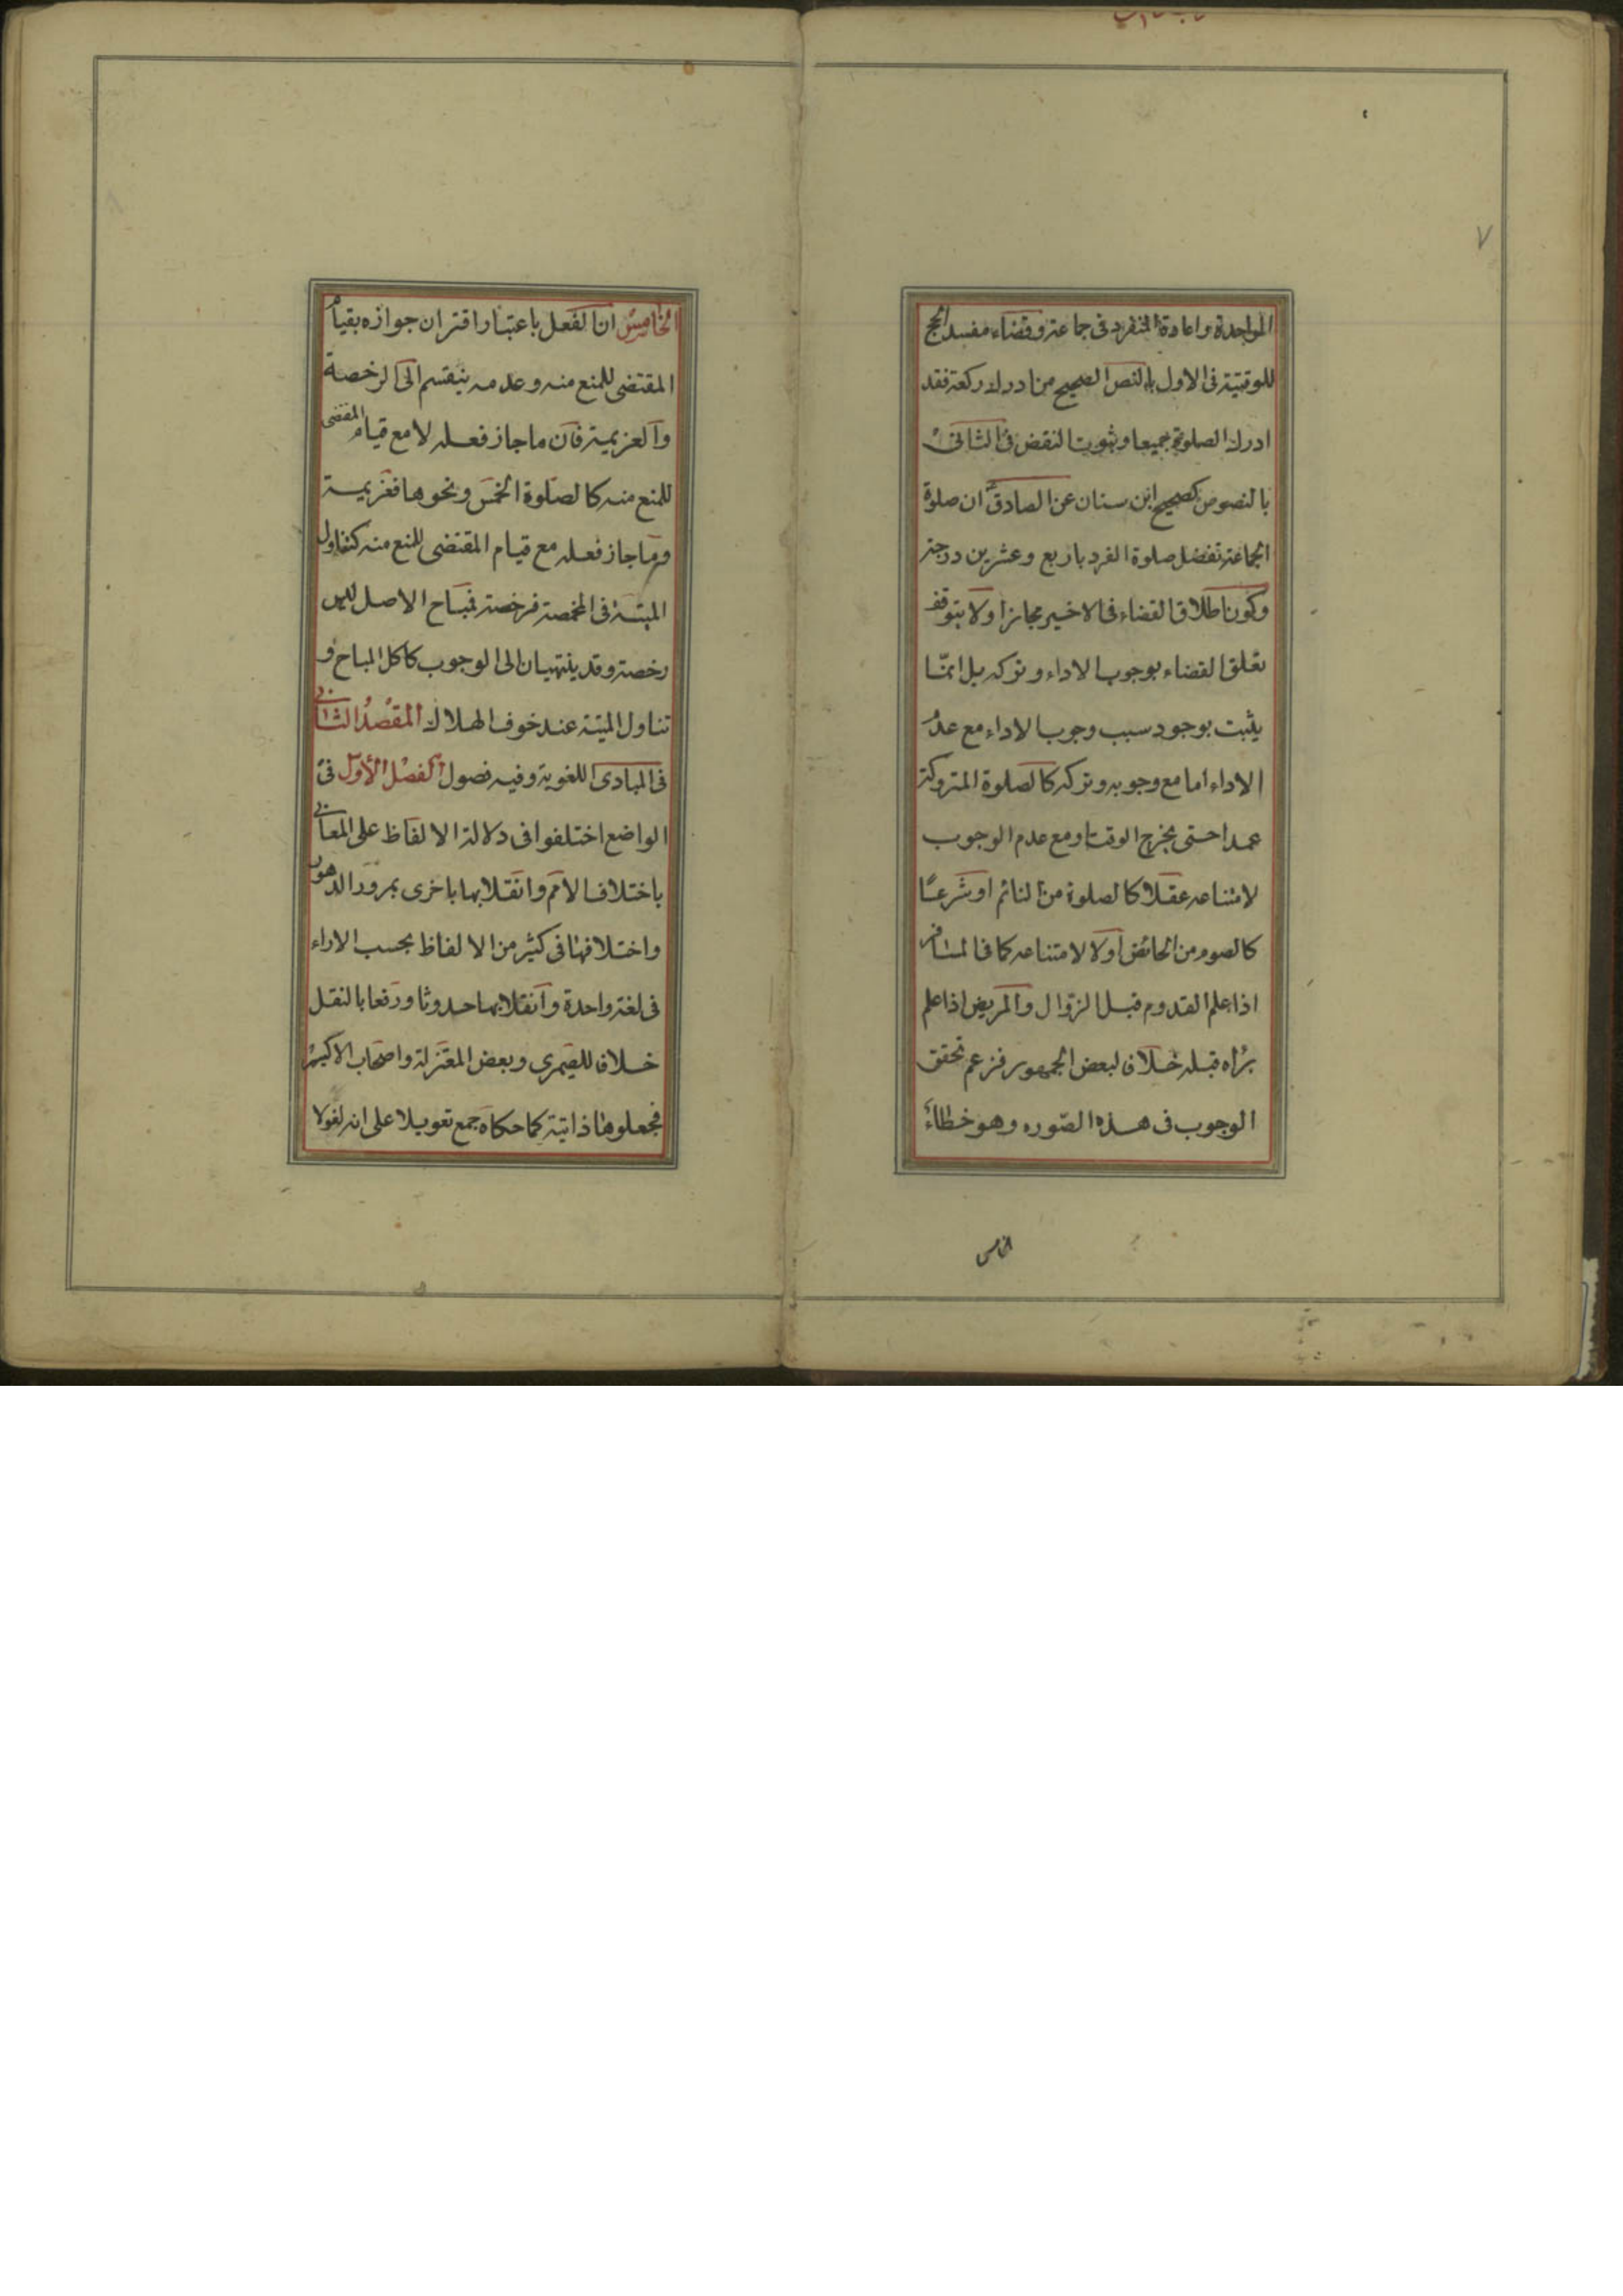 ٧
المواحدة واعادة المنفرد فى جماعة وقضاء مفسد الحج
للوقتية فى الاول بالنص الصحيح من ادرك ركعة فقد
ادرك الصلوة جميعا وثبوت النقض فى الثانى
بالنصوص كصحيح ابن سنان عن الصادق ان صلوة
الجماعة تفضل صلوة الفرد باربع وعشرين درجة
وكون اطلاق القضاء فى الاخير مجازا ولا يتوقف
تعلق القضاء بوجوب الاداء وتركه بل انمّا
يثبت بوجود سبب وجوب الاداء مع عدم
الاداء اما مع وجوبه وتركه كالصلوة المتروكة
عمدا حتى يخرج الوقت او مع عدم الوجوب
لامتناعه عقلا كالصلوة من النائم او شرعًا
كالصوم من الحائض اولا لامتناعه كما فى المسافر
اذا علم القدوم قبل الزوال والمريض اذا علم
براه قبله خلافا لبعض الجمهور فزعم تحقق
الوجوب فى هذه الصّوره وهو خطاء
الخامس
الخامس ان الفعل باعتبار اقتران جوازه بقيام
المقتضى للمنع منه وعدمه ينقسم الى الرخصة
والعزيمة فان ما جاز فعله لا مع قيام المقتضى
للمنع منه كالصلوة الخمس ونحوها فعزيمة
وما جاز فعله مع قيام المقتضى للمنع منه كتناول
الميتة فى المخمصة فرخصة فمباح الاصل ليس
رخصة وقد ينتهيان الى الوجوب كاكل المباح و
تناول الميتة عند خوف الهلاك المقصد الثانى
فى المبادى اللغوية وفيه فصول الفصل الأوّل فى
الواضع اختلفوا فى دلالة الالفاظ على المعانى
باختلاف الامم وانقلابها باخرى بمرور الدهور
واختلافها فى كثير من الالفاظ بحسب الاراء
فى لغة واحدة وانقلابها حدوثا ورفعا بالنقل
خلافا للصيمرى وبعض المعتزلة واصحاب الاكسير
فجعلوها ذاتية كما حكاه جمع تعويلا على انه لولا